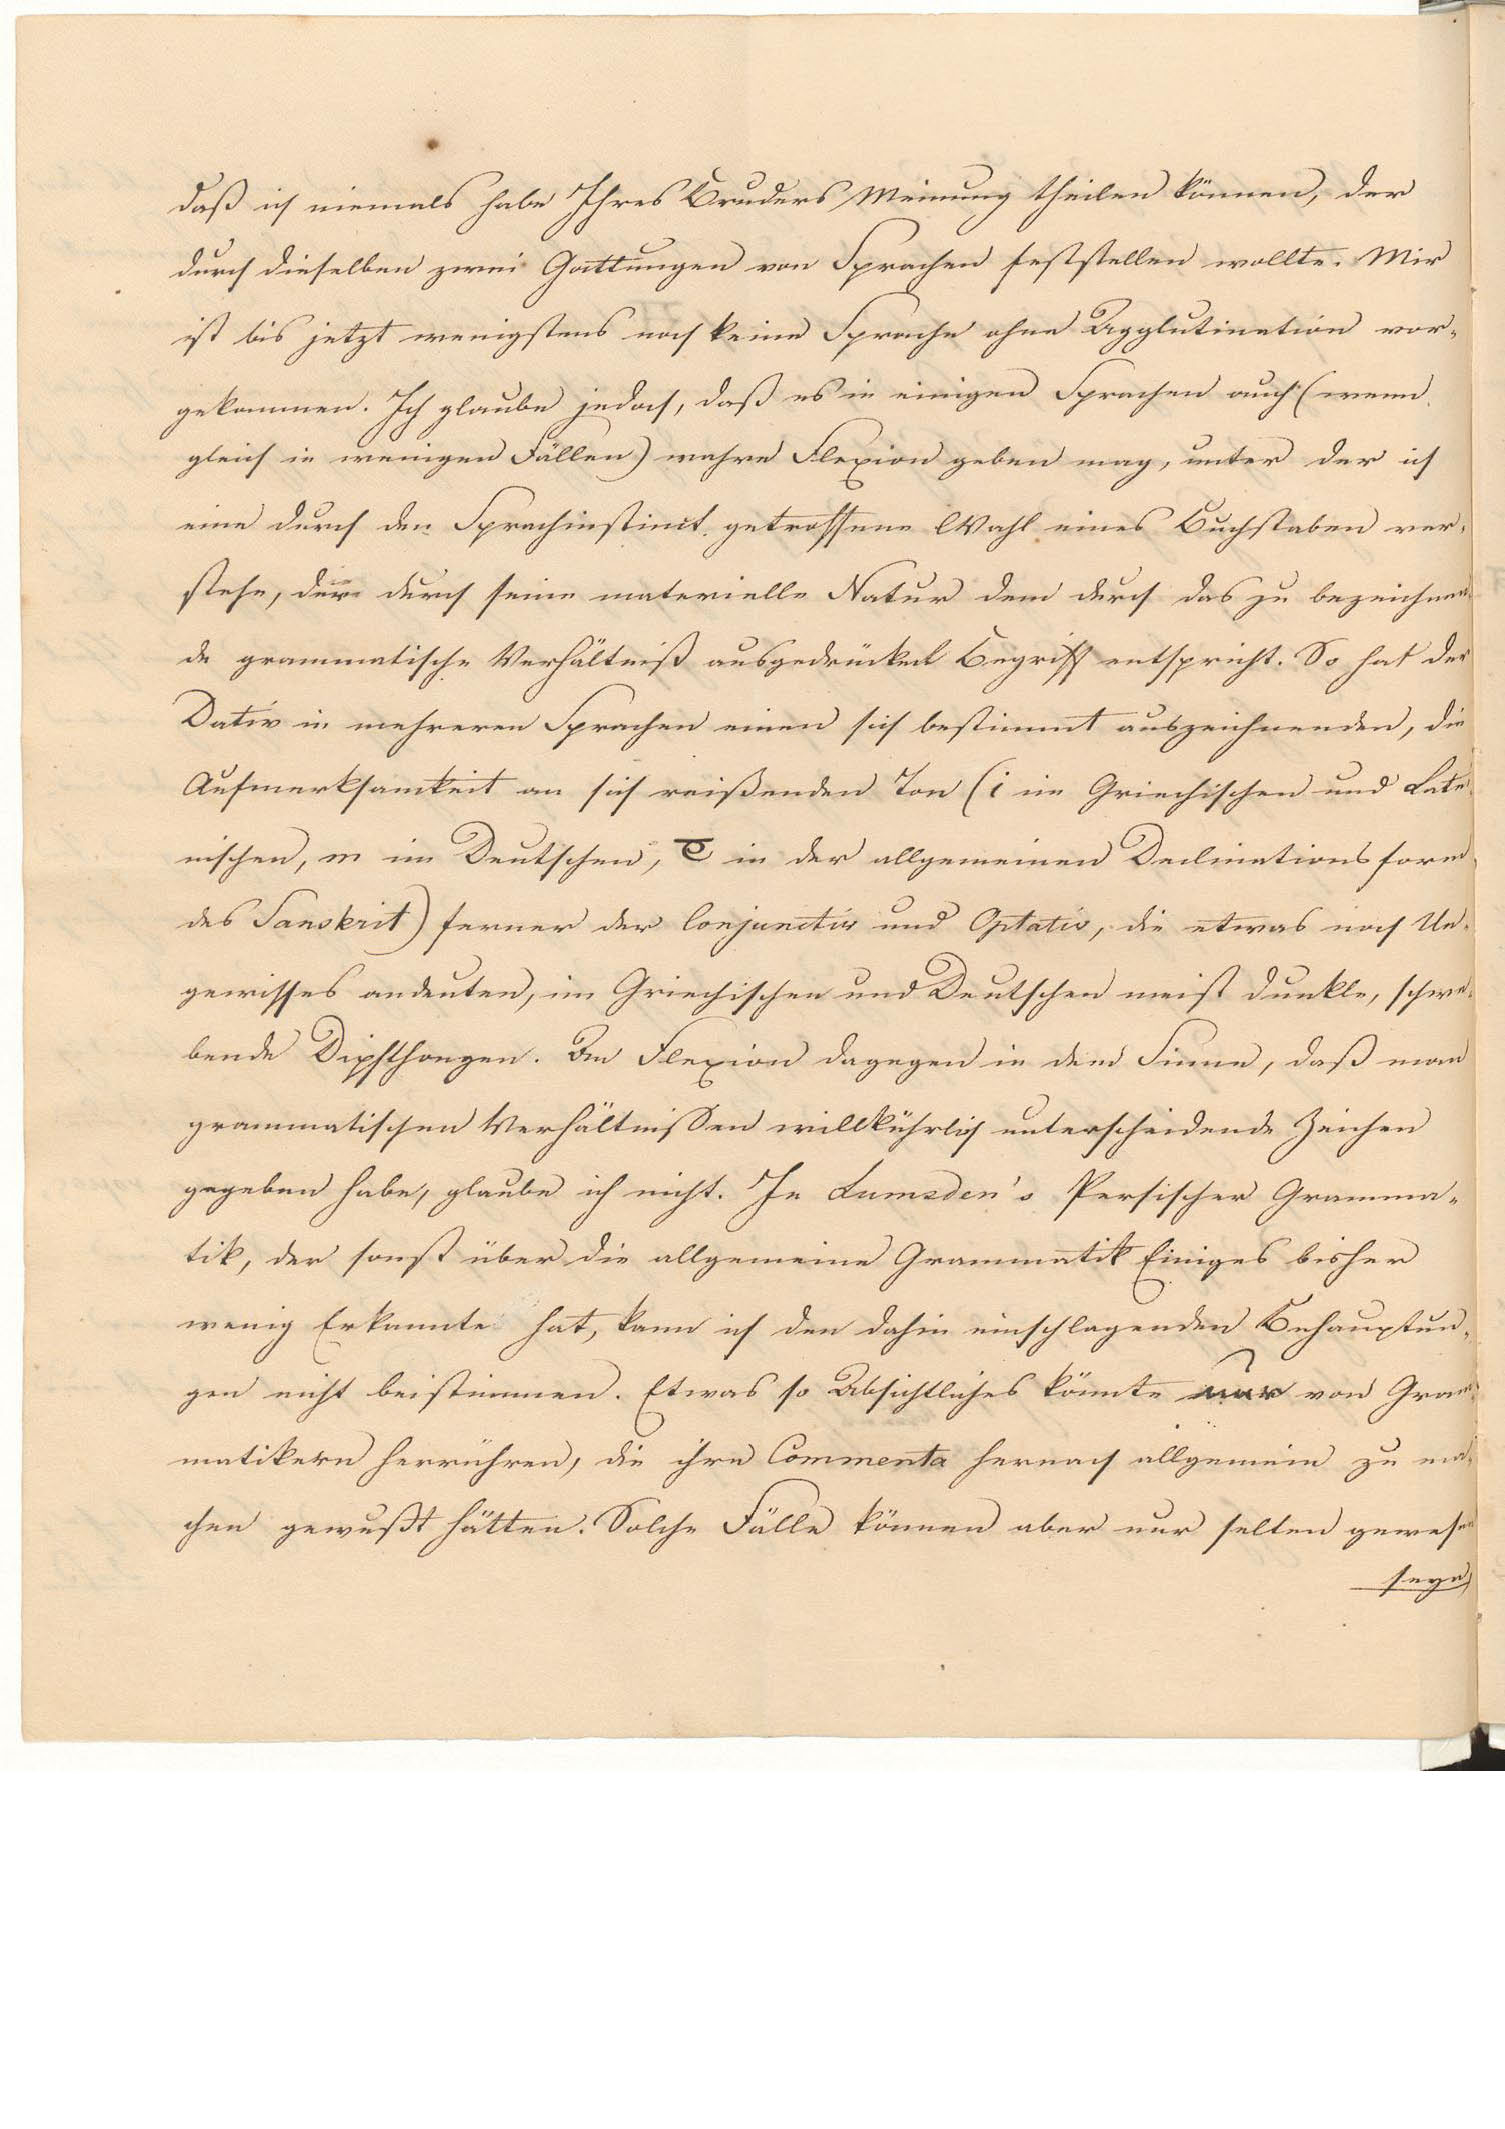 daß ich niemals habe Ihres Bruders Meinung theilen können, der
durch dieselben zwei Gattungen von Sprachen feststellen wollte. Mir
ist bis jetzt wenigstens noch keine Sprache ohne Agglutination vor-
gekommen. Ich glaube jedoch, daß es in einigen Sprachen auch (wenn
gleich in wenigen Fällen) wahre Flexion geben mag, unter der ich
eine durch den Sprachinstinct getroffene Wahl eines Buchstaben ver-
stehe, der durch seine materielle Natur dem durch das zu bezeichnen-
de grammatische Verhältniß ausgedrückten Begriff entspricht. So hat der
Dativ in mehreren Sprachen einen sich bestimmt auszeichnenden, die
Aufmerksamkeit an sich reißenden Ton (i im Griechischen und Latei-
nischen, m im Deutschen, ए in der allgemeinen Declinationsform
des Sanskrit) ferner der Conjunctiv und Optativ, die etwas noch Un-
gewisses andeuten, im Griechischen und Deutschen meist dunkle, schwe-
bende Diphthongen. An Flexion dagegen in dem Sinne, daß man
grammatischen Verhältnissen willkührlich unterscheidende Zeichen
gegeben habe, glaube ich nicht. In Lumsden's Persischer Gramma-
tik, der sonst über die allgemeine Grammatik Einiges bisher
wenig Erkannte hat, kann ich den dahin einschlagenden Behauptun-
gen nicht beistimmen. Etwas so Absichtliches könnte nur von Gram-
matikern herrühren, die ihre Commenta hernach allgemein zu ma-
chen gewußt hätten. Solche Fälle können aber nur selten gewesen
seyn,